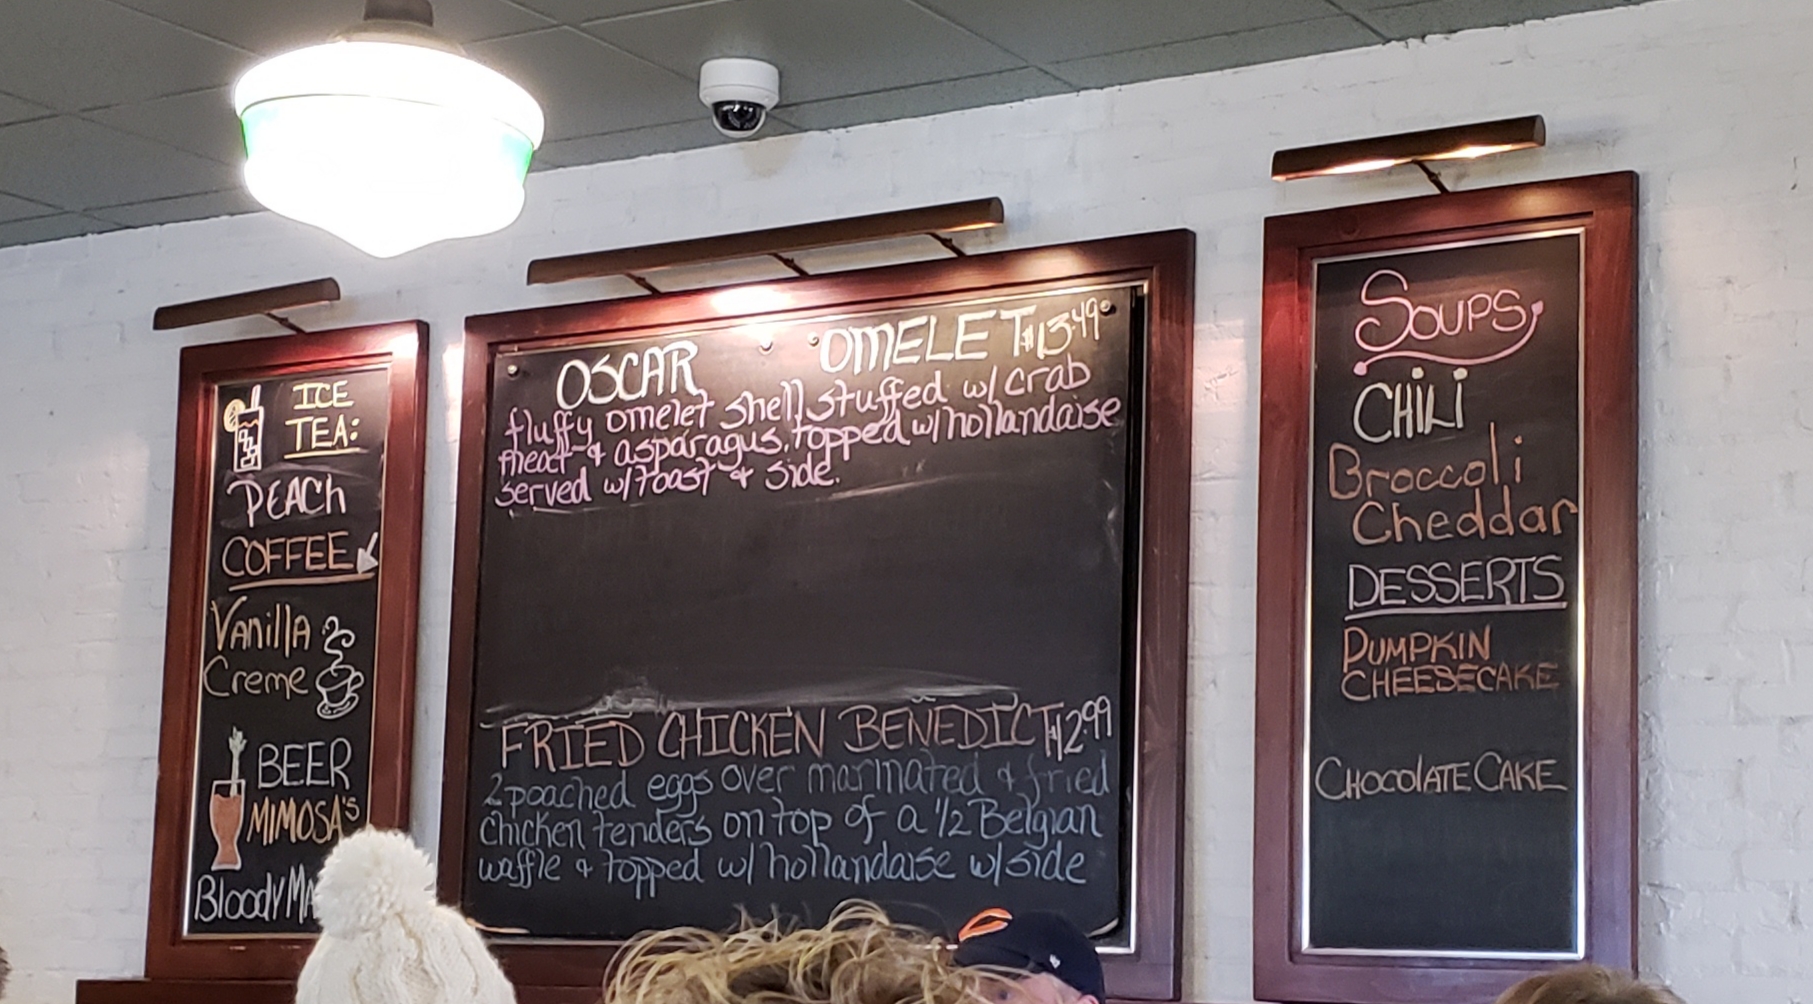 ICE
TEA:
PEACH
COFFEE
Vanilla
Creme
BEER
MIMOSA'S
Bloody
OSCAR OMELET $13.49
fluffy omelet shell stuffed w/ crab
meat & asparagus, topped w/ hollandaise
served w/ toast & side.
FRIED CHICKEN BENEDICT $12.99
2 poached eggs over marinated & fried
chicken tenders on top of a 1/2 Belgian
waffle & topped w/ hollandaise w/ side
SOUPS
CHILI
Broccoli
Cheddar
DESSERTS
PUMPKIN
CHEESECAKE
CHOCOLATE CAKE